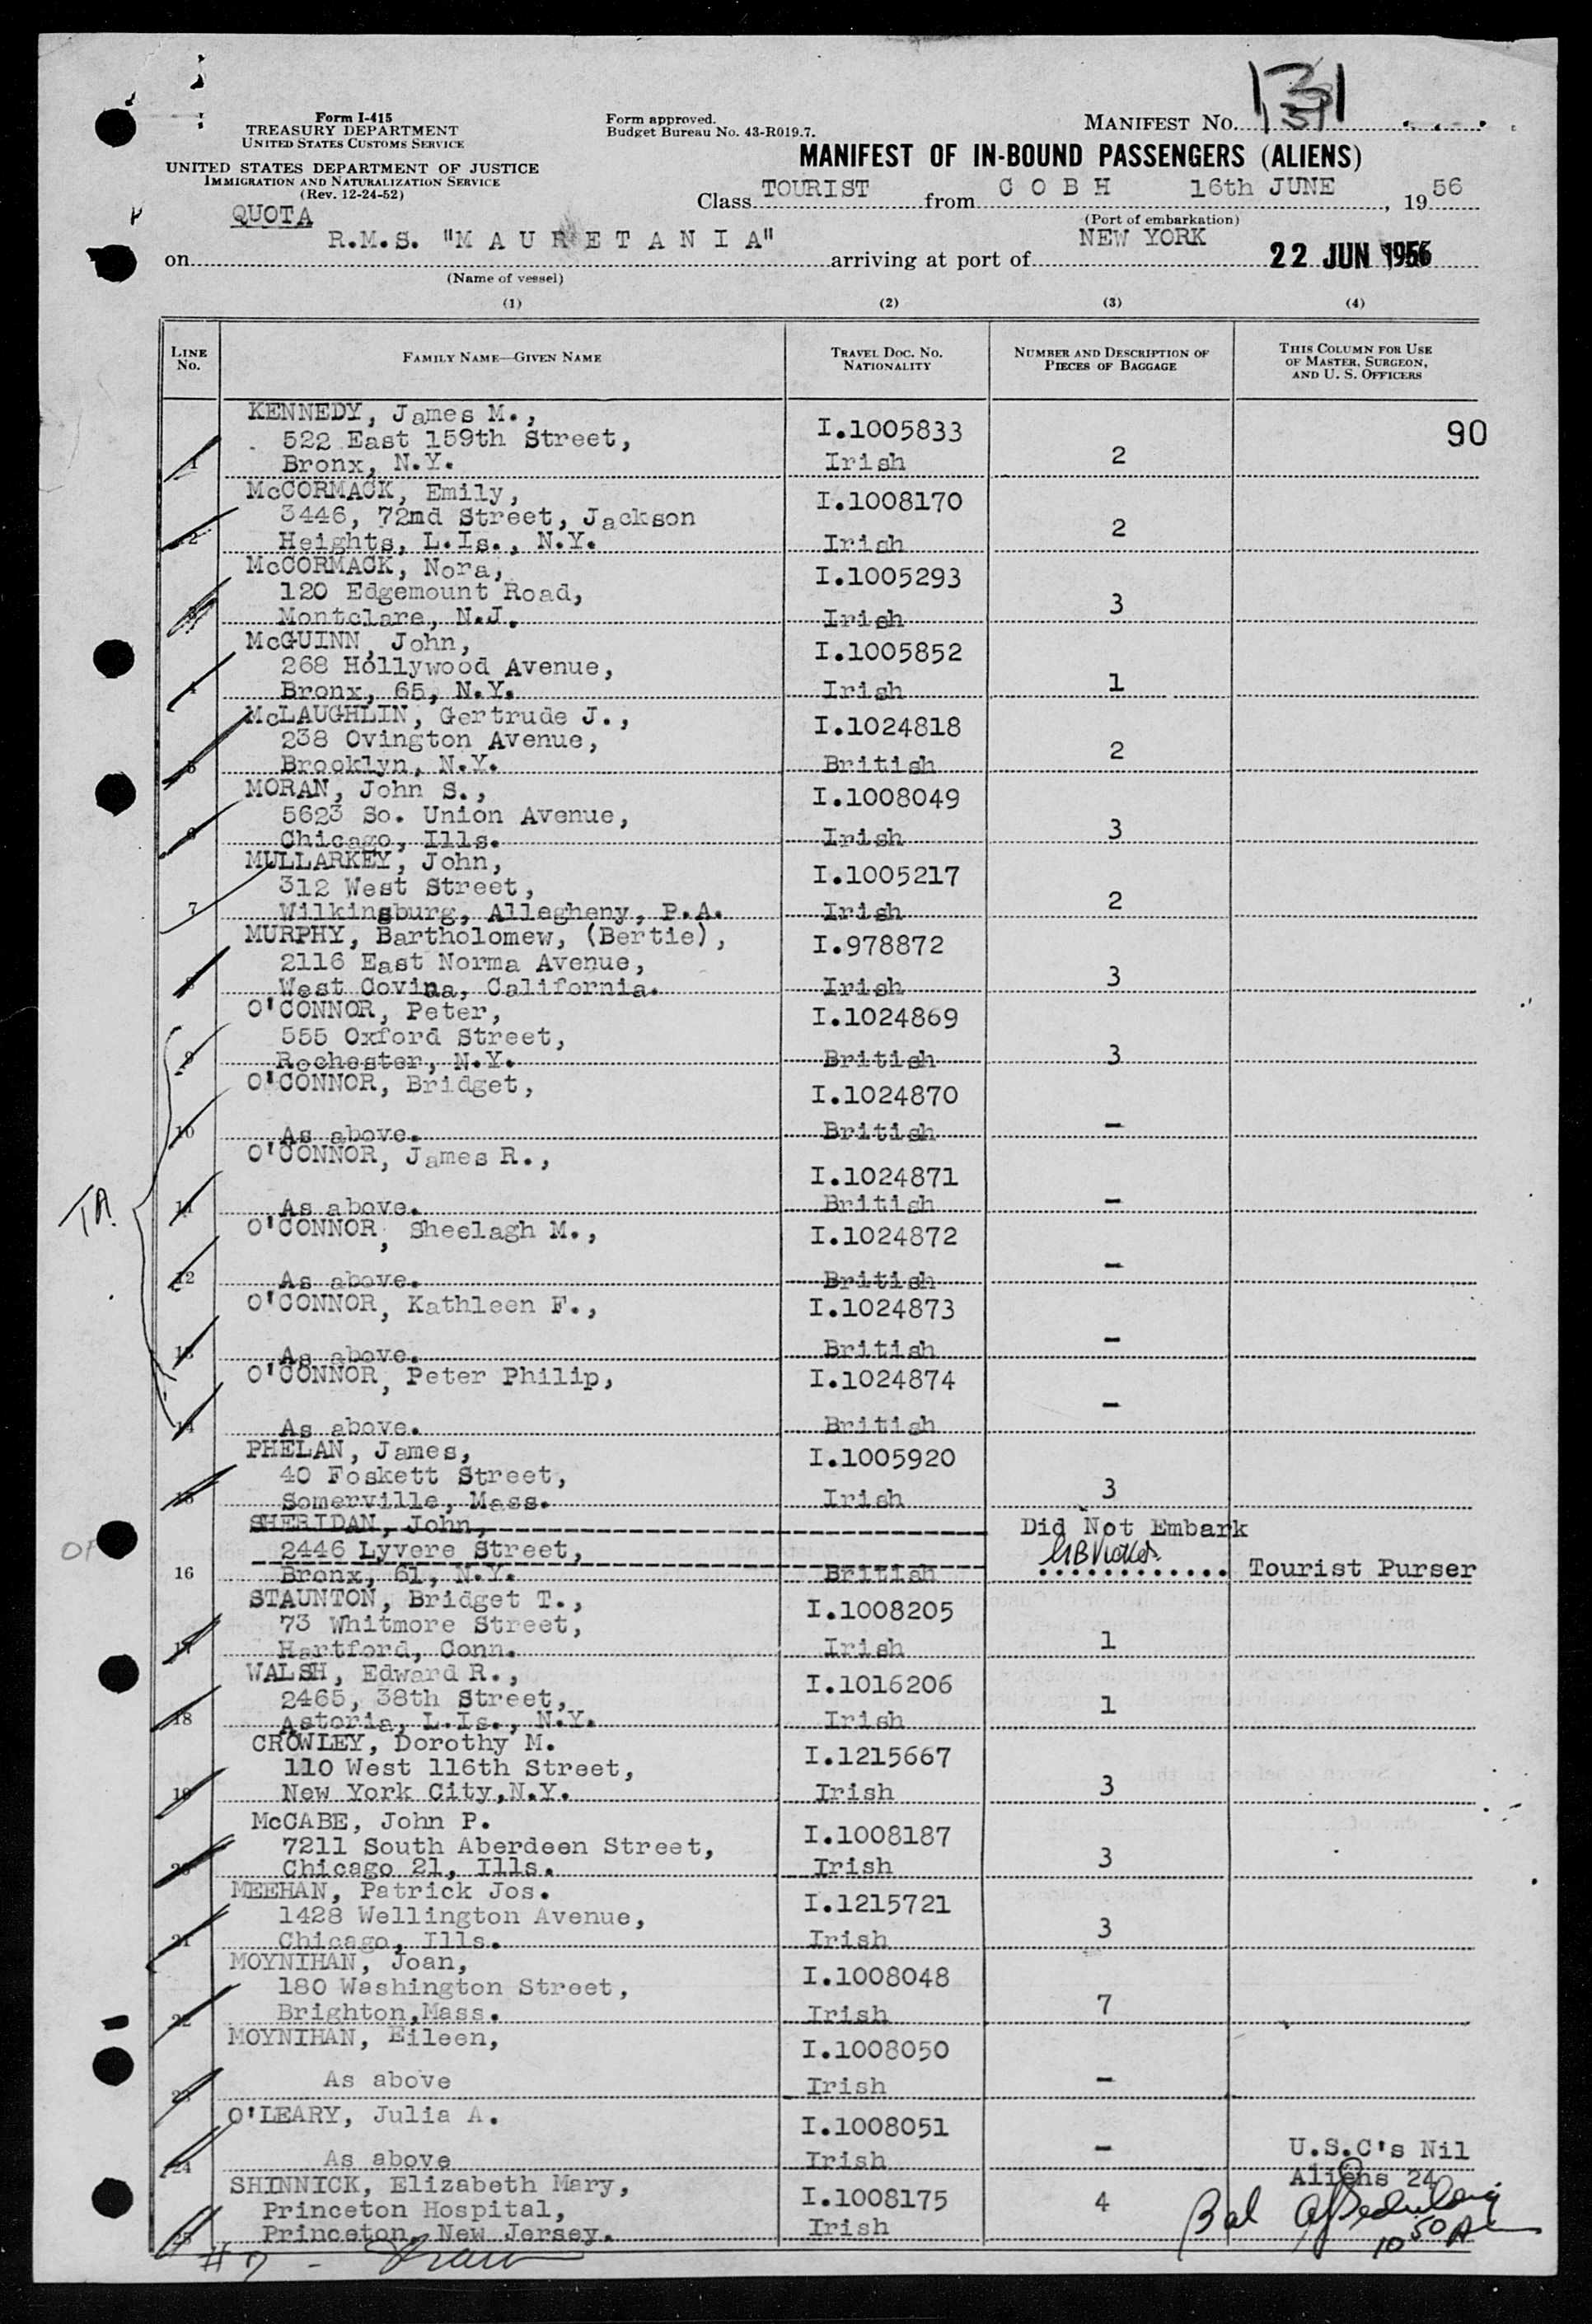 131
Form I-415
TREASURY DEPARTMENT
UNITED STATES CUSTOMS SERVICE
UNITED STATES DEPARTMENT OF JUSTICE
IMMIGRATION AND NATURALIZATION SERVICE
(Rev. 12-24-52)
Form approved.
Budget Bureau No. 43-R019.7.
MANIFEST NO.
MANIFEST OF IN-BOUND PASSENGERS (ALIENS)
Class TOURIST from C O B H 16th JUNE, 1956
(Port of embarkation)
QUOTA
on R.M.S. "M A U R E T A N I A" arriving at port of NEW YORK 22 JUN 1956
(Name of vessel)
(1) (2) (3) (4)
LINE NO. FAMILY NAME—GIVEN NAME TRAVEL DOC. NO. NATIONALITY NUMBER AND DESCRIPTION OF PIECES OF BAGGAGE THIS COLUMN FOR USE OF MASTER, SURGEON, AND U. S. OFFICERS
90
KENNEDY, James M.,
522 East 159th Street, I.1005833
1 Bronx, N.Y. Irish 2
McCORMACK, Emily, I.1008170
3446, 72nd Street, Jackson
2 Heights, L.Is., N.Y. Irish 2
McCORMACK, Nora, I.1005293
120 Edgemount Road,
3 Montclare, N.J. Irish 3
McGUINN, John, I.1005852
268 Hollywood Avenue,
4 Bronx, 65, N.Y. Irish 1
McLAUGHLIN, Gertrude J., I.1024818
238 Ovington Avenue,
5 Brooklyn, N.Y. British 2
MORAN, John S., I.1008049
5623 So. Union Avenue,
6 Chicago, Ills. Irish 3
MULLARKEY, John, I.1005217
312 West Street,
7 Wilkinsburg, Allegheny, P.A. Irish 2
MURPHY, Bartholomew, (Bertie), I.978872
2116 East Norma Avenue,
8 West Covina, California. Irish 3
O'CONNOR, Peter, I.1024869
555 Oxford Street,
9 Rochester, N.Y. British 3
O'CONNOR, Bridget, I.1024870
10 As above. British -
O'CONNOR, James R., I.1024871
11 As above. British -
TA
O'CONNOR, Sheelagh M., I.1024872
12 As above. British -
O'CONNOR, Kathleen F., I.1024873
13 As above. British -
O'CONNOR, Peter Philip, I.1024874
14 As above. British -
PHELAN, James, I.1005920
40 Foskett Street,
15 Somerville, Mass. Irish 3
SHERIDAN, John, Did Not Embark
2446 Lyvere Street,
16 Bronx, 61, N.Y. British Tourist Purser
STAUNTON, Bridget T., I.1008205
73 Whitmore Street,
17 Hartford, Conn. Irish 1
WALSH, Edward R., I.1016206
2465, 38th Street,
18 Astoria, L.Is., N.Y. Irish 1
CROWLEY, Dorothy M. I.1215667
110 West 116th Street,
19 New York City,N.Y. Irish 3
McCABE, John P. I.1008187
7211 South Aberdeen Street,
20 Chicago 21, Ills. Irish 3
MEEHAN, Patrick Jos. I.1215721
1428 Wellington Avenue,
21 Chicago, Ills. Irish 3
MOYNIHAN, Joan, I.1008048
180 Washington Street,
22 Brighton,Mass. Irish 7
MOYNIHAN, Eileen, I.1008050
23 As above Irish -
O'LEARY, Julia A. I.1008051
24 As above Irish -
U.S.C's Nil
Aliens 24
SHINNICK, Elizabeth Mary, I.1008175
Princeton Hospital, 4
25 Princeton, New Jersey. Irish
Bal
10 50 A
#7 -